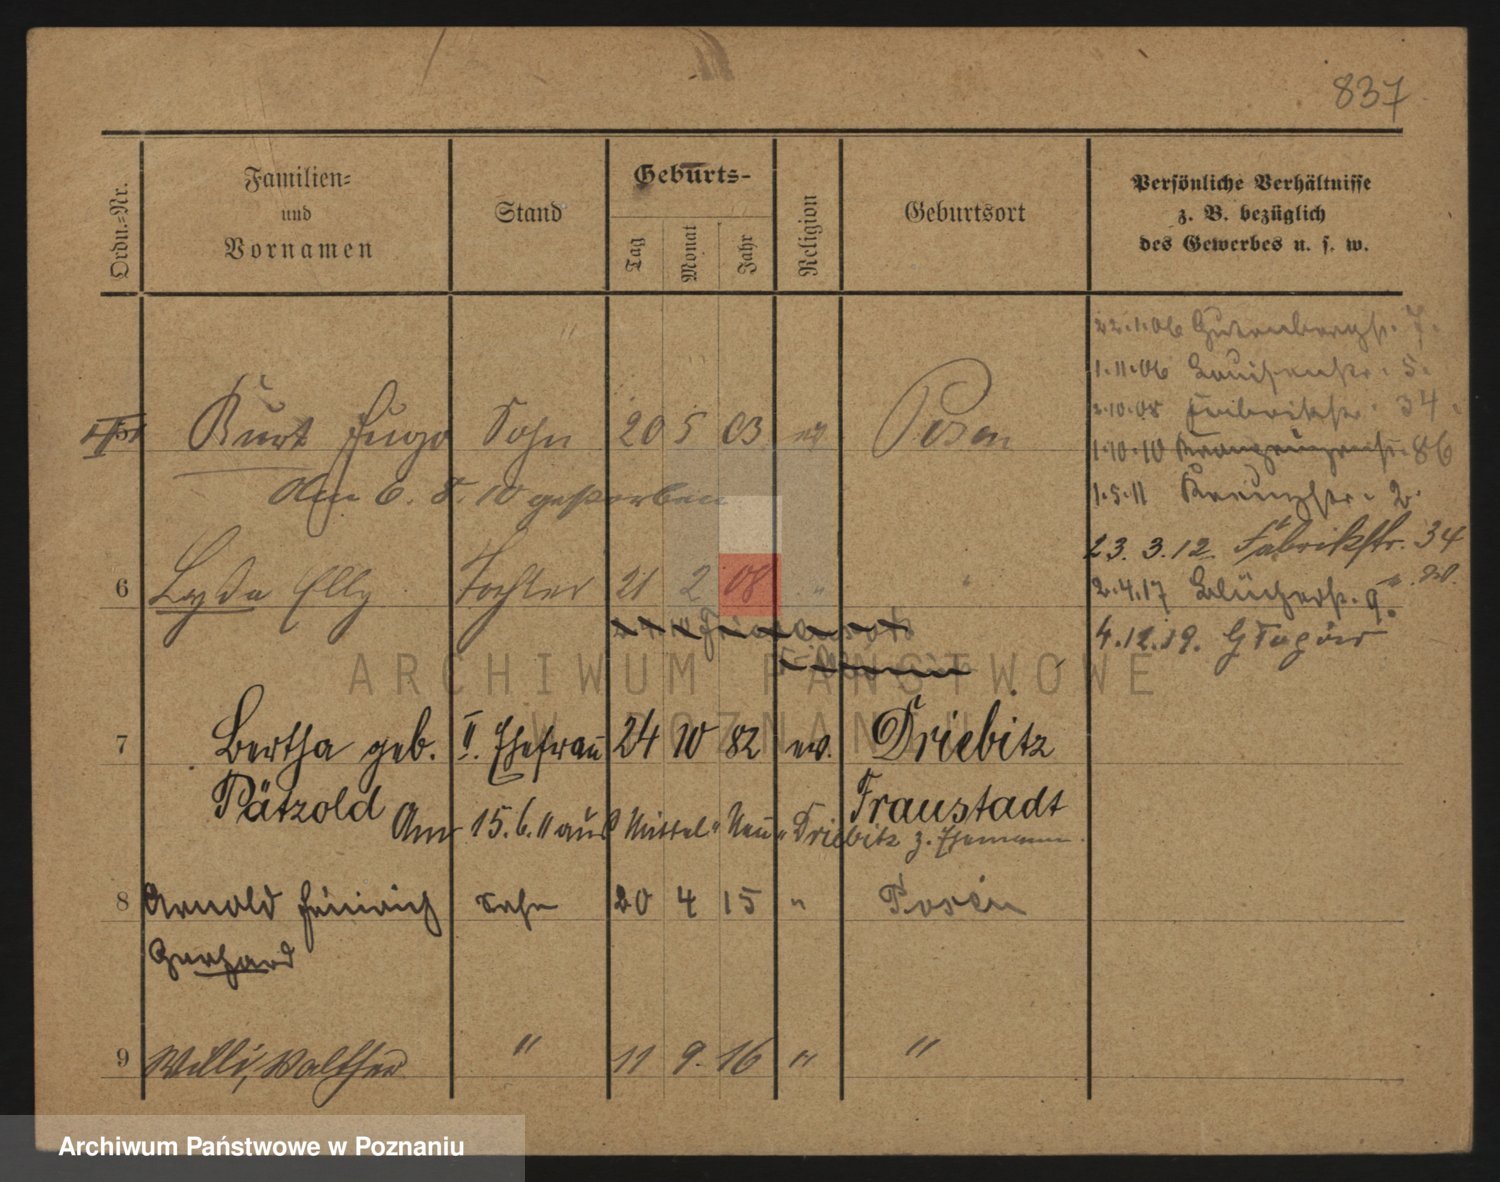 837
Ordn.-Nr.
Familien-
und
Vornamen
Stand
Geburts-
Tag
Monat
Jahr
Religion
Geburtsort
Persönliche Verhältnisse
z. B. bezüglich
des Gewerbes u. s. w.
22.1.06 Gutenbergstr. 7.
1.11.06 Louisenstr. 5.
2.10.08 Fabrikstr. 34.
Kurt Hugo Sohn 20 5 03 ev Posen
1.10.10 Kronprinzenstr. 86
Am 6. 8. 10 gestorben
1.5.11 Kreuzstr. 2.
23. 3. 12. Fabrikstr. 34
6 Lyda Elly Tochter 21 2 08 " "
2.4.17 Blücherstr. 9.
4.12.19. Głogów
7 Bertha geb. II. Ehefrau 24 10 82 ev. Driebitz
Pätzold Fraustadt
Am 15.6.11 aus Mittel " Neu " Driebitz z. Ehemann.
8 Arnold Heinrich Sohn 20 4 15 " Posen
Gerhard
9 Willi, Walther " 11 9. 16 " "
ARCHIWUM PAŃSTWOWE
W POZNANIU
Archiwum Państwowe w Poznaniu